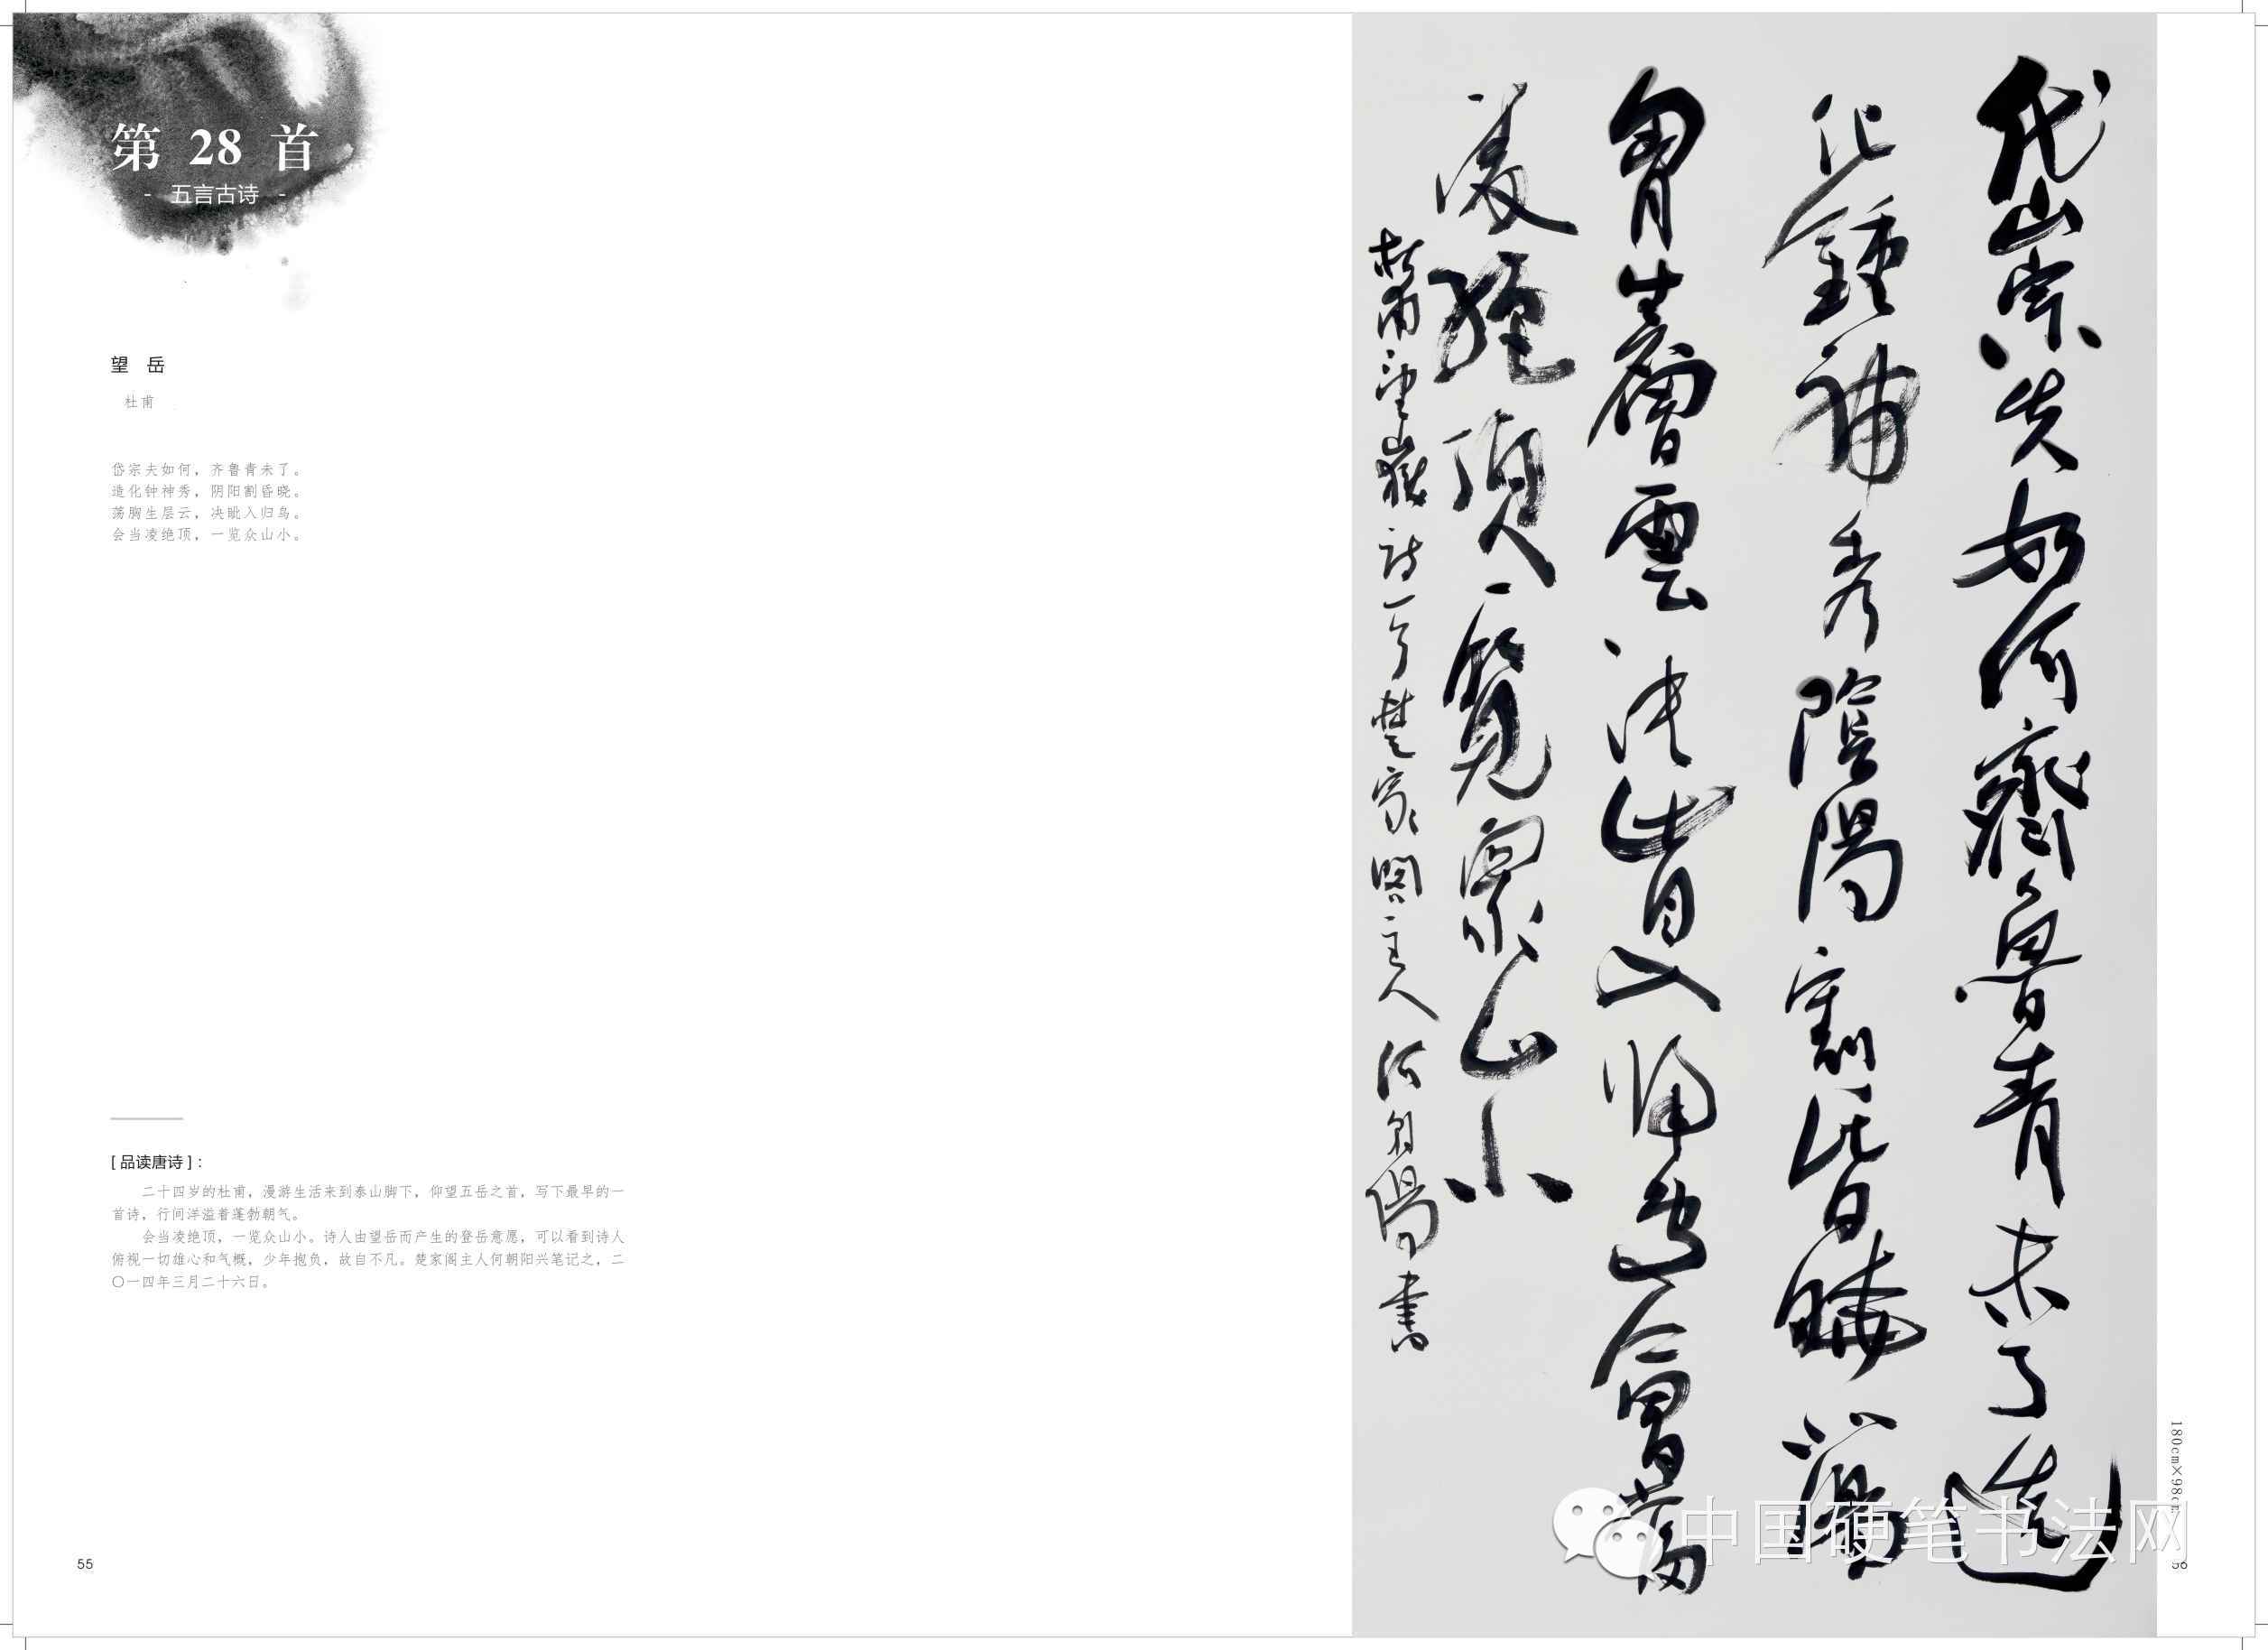 第 28 首
- 五言古诗 -
望 岳
杜甫
岱宗夫如何，齐鲁青未了。
造化钟神秀，阴阳割昏晓。
荡胸生层云，决眦入归鸟。
会当凌绝顶，一览众山小。
[ 品读唐诗 ]：
二十四岁的杜甫，漫游生活来到泰山脚下，仰望五岳之首，写下最早的一
首诗，行间洋溢着蓬勃朝气。
会当凌绝顶，一览众山小。诗人由望岳而产生的登岳意愿，可以看到诗人
俯视一切雄心和气概，少年抱负，故自不凡。楚家阁主人何朝阳兴笔记之，二
〇一四年三月二十六日。
55
岱宗夫如何齊魯青未了造
化鍾神秀陰陽割昏曉盪
胷生層雲決眥入歸鳥會當
凌絕頂一覽衆山小
杜甫望嶽詩一首楚家閣主人何朝陽書
180cm×98cm
中国硬笔书法网
56